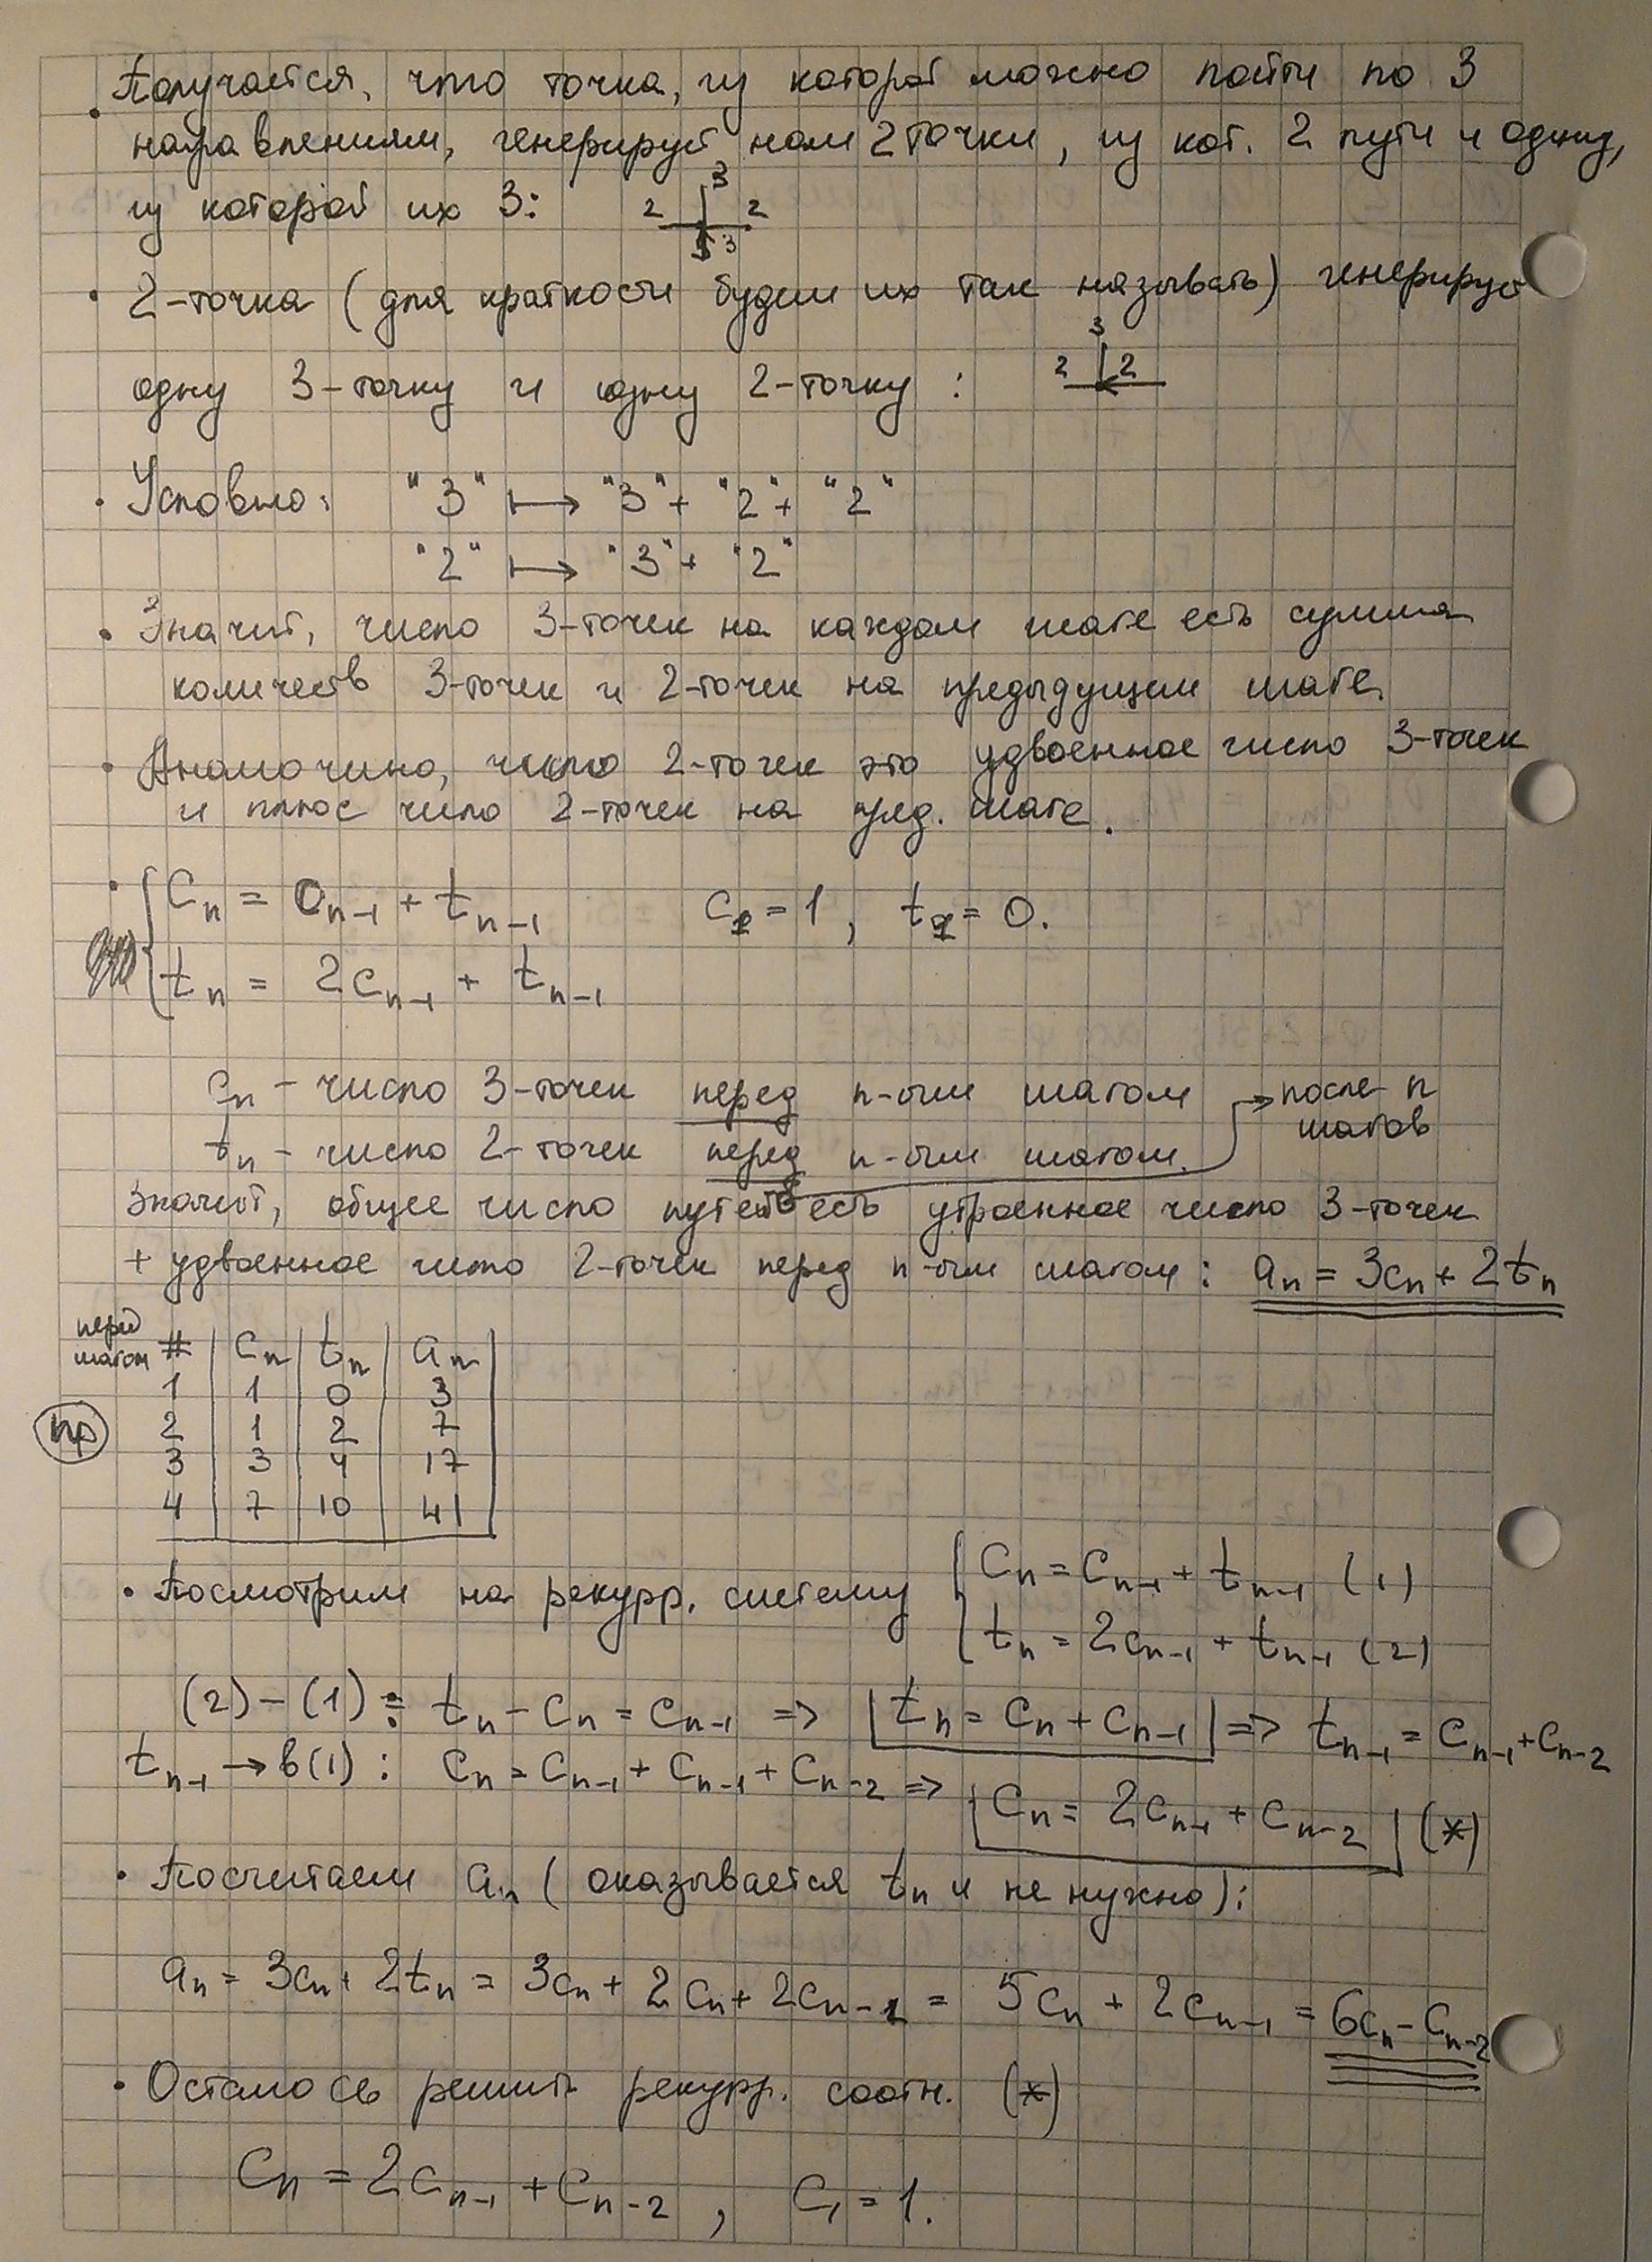 • Получается, что точка, из которой можно пойти по 3
направлениям, генерирует нам 2 точки, из кот. 2 пути и одну,
из которой их 3: 2 3 2 3
• 2-точка (для краткости будем их так называть) генерирует
одну 3-точку и одну 2-точку: 2 3 2
• Условно: "3" ⟼ "3" + "2" + "2"
"2" ⟼ "3" + "2"
• Значит, число 3-точек на каждом шаге есть сумма
количеств 3-точек и 2-точек на предыдущем шаге.
• Аналогично, число 2-точек это удвоенное число 3-точек
и плюс число 2-точек на пред. шаге.
• { Cn = Cn-1 + tn-1 C1 = 1, t1 = 0.
tn = 2Cn-1 + tn-1
Cn - число 3-точек перед n-ым шагом → после n
tn - число 2-точек перед n-ым шагом. шагов
Значит, общее число путей есть утроенное число 3-точек
+ удвоенное число 2-точек перед n-ым шагом: an = 3Cn + 2tn
перед
шагом # | Cn | tn | an
1 | 1 | 0 | 3
пр 2 | 1 | 2 | 7
3 | 3 | 4 | 17
4 | 7 | 10 | 41
• Посмотрим на рекурр. систему { Cn = Cn-1 + tn-1 (1)
tn = 2Cn-1 + tn-1 (2)
(2) - (1) : tn - Cn = Cn-1 => tn = Cn + Cn-1 => tn-1 = Cn-1 + Cn-2
tn-1 → в (1) : Cn = Cn-1 + Cn-1 + Cn-2 => Cn = 2Cn-1 + Cn-2 (*)
• Посчитаем an (оказывается tn и не нужно):
an = 3Cn + 2tn = 3Cn + 2Cn + 2Cn-1 = 5Cn + 2Cn-1 = 6Cn - Cn-2
• Осталось решить рекурр. соотн. (*)
Cn = 2Cn-1 + Cn-2, C1 = 1.